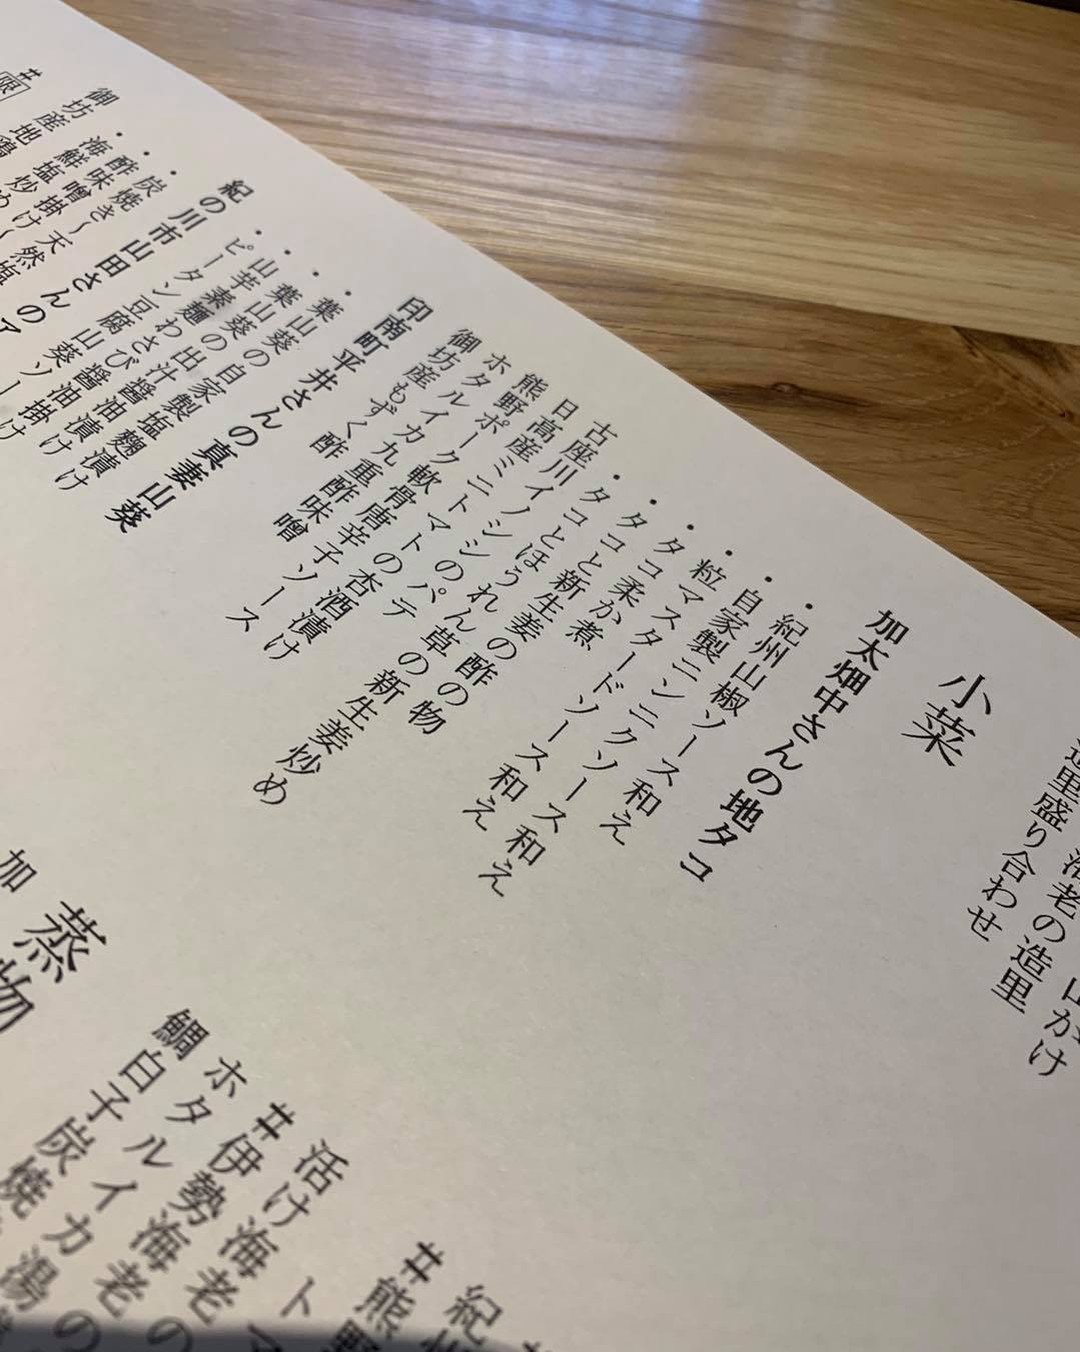 山がけ
海老の造里
造里盛り合わせ
小菜
加太畑中さんの地タコ
・紀州山椒ソース和え
・自家製ニンニクソース和え
・粒マスタードソース和え
・タコ柔か煮
・タコと新生姜の酢の物
・タコとほうれん草の新生姜炒め
古座川イノシシのパテ
日高産ミニトマトの杏酒漬け
熊野ポーク軟骨 唐辛子ソース
ホタルイカ九重酢味噌
御坊産もずく酢
印南町平井さんの真妻山葵
・葉山葵の自家製塩麹漬け
・葉山葵の出汁醤油漬け
・山芋素麺わさび醤油掛け
・ピータン豆腐 山葵ソー
紀の川市山田さんのア
・炭焼き~天然塩
・酢味噌掛け
・海鮮塩炒め
御坊産地鶏
#限
紀州
#熊野
活け海老の
#伊勢海老の
ホタルイカ
鯛白子炭焼
蒸物
加